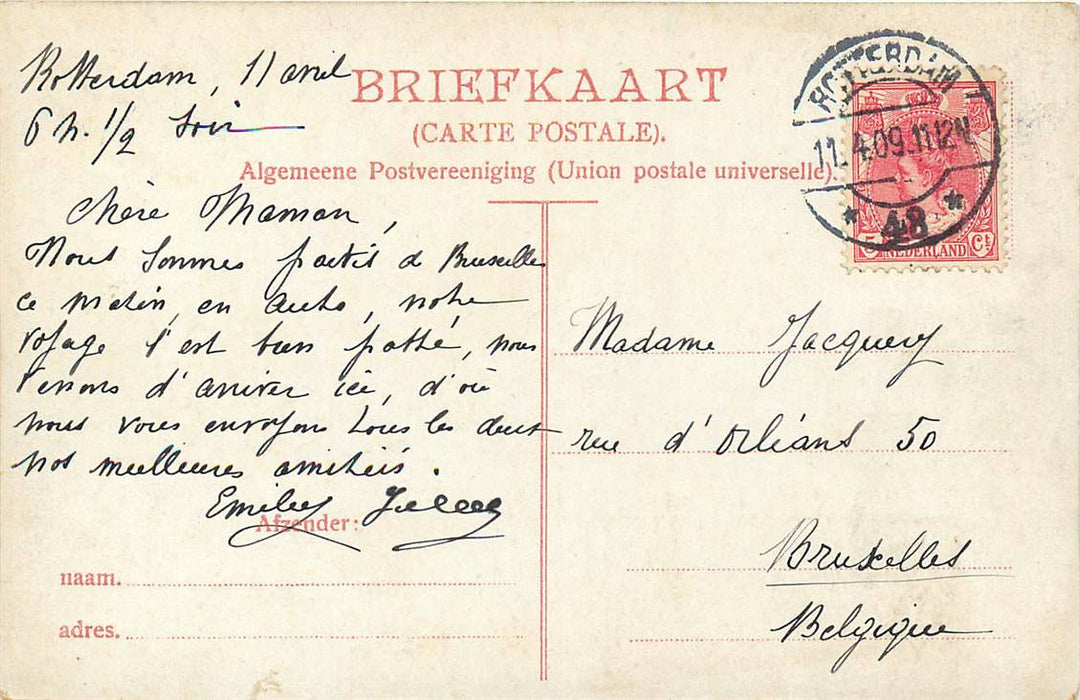 Rotterdam, 11 avril
6 h. 1/2 soir
BRIEFKAART
(CARTE POSTALE).
Algemeene Postvereeniging (Union postale universelle).
Chère Maman,
Nous sommes partis de Bruxelles
ce matin, en auto, notre
voyage s'est bien passé, nous
venons d'arriver ici, d'où
nous vous envoyons tous les deux
nos meilleures amitiés.
Emile
Afzender:
naam.
adres.
ROTTERDAM
11.4.09.11-12N
48
5 NEDERLAND Ct
Madame Jacquery
rue d'Orléans 50
Bruxelles
Belgique